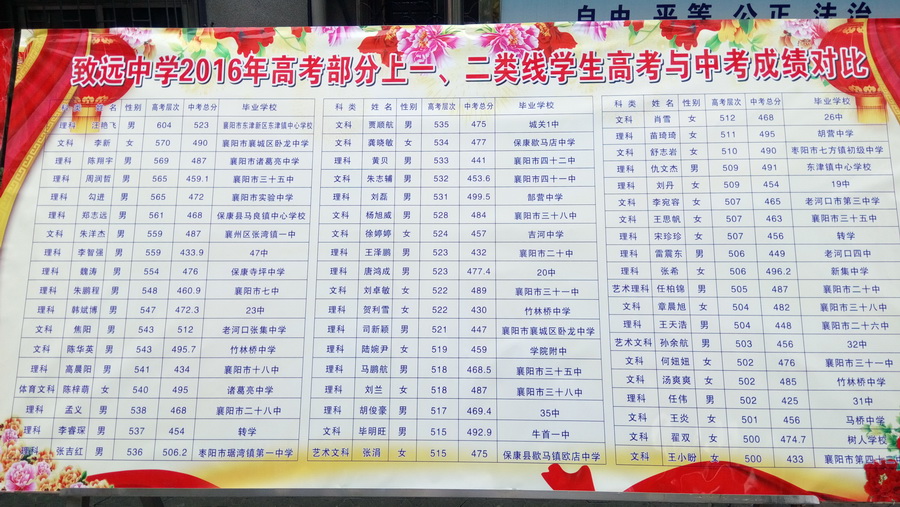 自由 平等 公正 法治
致远中学2016年高考部分上一、二类线学生高考与中考成绩对比
科类 姓名 性别 高考层次 中考总分 毕业学校
理科 汪艳飞 男 604 523 襄阳市东津新区东津镇中心学校
文科 李新 女 570 490 襄阳市襄城区卧龙中学
理科 陈翔宇 男 569 487 襄阳市诸葛亮中学
理科 周润哲 男 565 459.1 襄阳市三十五中
理科 勾进 男 565 472 襄阳市实验中学
理科 郑志远 男 561 468 保康县马良镇中心学校
文科 朱洋杰 男 559 487 襄州区张湾镇一中
理科 李智强 男 559 433.9 47中
理科 魏涛 男 554 476 保康寺坪中学
理科 朱鹏程 男 548 460.9 襄阳市七中
理科 韩斌博 男 547 472.3 23中
文科 焦阳 男 543 512 老河口张集中学
文科 陈华英 男 543 495.7 竹林桥中学
理科 高晨阳 男 541 434 襄阳市十八中
体育文科 陈梓萌 女 540 495 诸葛亮中学
理科 孟义 男 538 468 襄阳市二十八中
理科 李睿琛 男 537 454 转学
理科 张吉红 男 536 506.2 枣阳市琚湾镇第一中学
科类 姓名 性别 高考层次 中考总分 毕业学校
文科 贾顺航 男 535 475 城关1中
文科 龚晓敏 女 534 477 保康歇马店中学
理科 黄贝 男 533 441 襄阳市四十二中
文科 朱志辅 男 532 453.6 襄阳市四十一中
理科 刘磊 男 531 499.5 郜营中学
文科 杨旭威 男 528 484 襄阳市三十八中
文科 徐婷婷 女 524 457 吉河中学
理科 王泽鹏 男 523 432 襄阳市二十中
理科 唐鸿成 男 523 477.4 20中
文科 刘卓敏 女 522 489 襄阳市三十一中
理科 贺利雪 女 522 430 竹林桥中学
理科 司新颖 男 521 447 襄阳市襄城区卧龙中学
理科 陆婉尹 女 519 459 学院附中
理科 马鹏航 男 518 468.5 襄阳市三十五中
理科 刘兰 女 518 487 襄阳市三十一中
理科 胡俊豪 男 517 469.4 35中
文科 毕明旺 男 515 492.9 牛首一中
艺术文科 张涓 女 515 475 保康县歇马镇欧店中学
科类 姓名 性别 高考层次 中考总分 毕业学校
文科 肖雪 女 512 468 26中
理科 苗琦琦 女 511 495 胡营中学
文科 舒志岩 女 510 490 枣阳市七方镇初级中学
理科 仇文杰 男 509 491 东津镇中心学校
理科 刘丹 女 509 454 19中
文科 李宛容 女 507 465 老河口市第三中学
文科 王思帆 女 507 463 襄阳市三十五中
理科 宋珍珍 女 507 456 转学
理科 雷震东 男 506 449 老河口四中
文科 张希 女 506 496.2 新集中学
艺术理科 任柏锦 男 505 487 襄阳市二十中
文科 章晨旭 女 504 482 襄阳市三十八中
理科 王天浩 男 504 448 襄阳市二十六中
艺术文科 孙余航 男 503 456 32中
文科 何妞妞 女 502 476 襄阳市三十一中
文科 汤爽爽 女 502 485 竹林桥中学
理科 任伟 男 502 425 31中
文科 王炎 女 501 456 马桥中学
文科 翟双 女 500 474.7 树人学校
文科 王小盼 女 500 433 襄阳市第四十